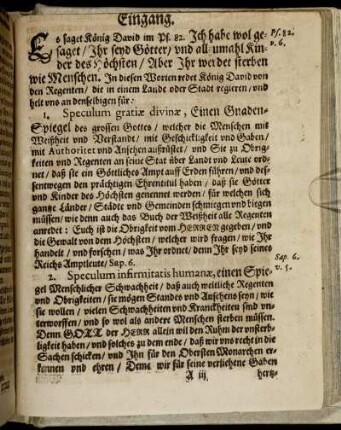 Eingang.
Es saget König David im Ps. 82. Ich habe wol ge-
saget / Ihr seyd Götter / vnd allzumahl Kin-
der des Höchsten / Aber Ihr werdet sterben
wie Menschen. In diesen Worten redet König David von
den Regenten / die in einem Lande oder Stadt regieren / vnd
helt vns an denselbigen für:
1. Speculum gratiæ divinæ, Einen Gnaden-
Spiegel des grossen Gottes / welcher die Menschen mit
Weißheit vnd Verstande / mit Geschickligkeit vnd Gaben /
mit Authoritet vnd Ansehen außrüstet / vnd Sie zu Obrig-
keiten vnd Regenten an seine Stat über Landt vnd Leute ord-
net / daß sie ein Göttliches Ampt auff Erden führen / vnd des-
sentwegen den prächtigen Ehrentitul haben / daß sie Götter
vnd Kinder des Höchsten genennet werden / für welchen sich
gantze Länder / Städte vnd Gemeinden schmiegen vnd biegen
müssen / wie denn auch das Buch der Weißheit alle Regenten
anredet: Euch ist die Obrigkeit vom HERREN gegeben / vnd
die Gewalt von dem Höchsten / welcher wird fragen / wie Ihr
handelt / vnd forschen / was Ihr ordnet / denn Ihr seyd seines
Reichs Amptleute / Sap. 6.
2. Speculum infirmitatis humanæ, einen Spie-
gel Menschlicher Schwachheit / daß auch weltliche Regenten
vnd Obrigkeiten / sie mögen Standes vnd Ansehens seyn / wie
sie wollen / vielen Schwachheiten vnd Kranckheiten sind vn-
terworffen / vnd so wol als andere Menschen sterben müssen.
Denn GOTT der HERR allein wil den Ruhm der vnsterb-
ligkeit haben / vnd solches zu dem ende / daß wir vns recht in die
Sachen schicken / vnd Ihn für den Obersten Monarchen er-
kennen vnd ehren / Deme wir für seine verliehene Gaben
A iij hertz-
Ps. 82.
v. 6.
Sap. 6.
v. 5.